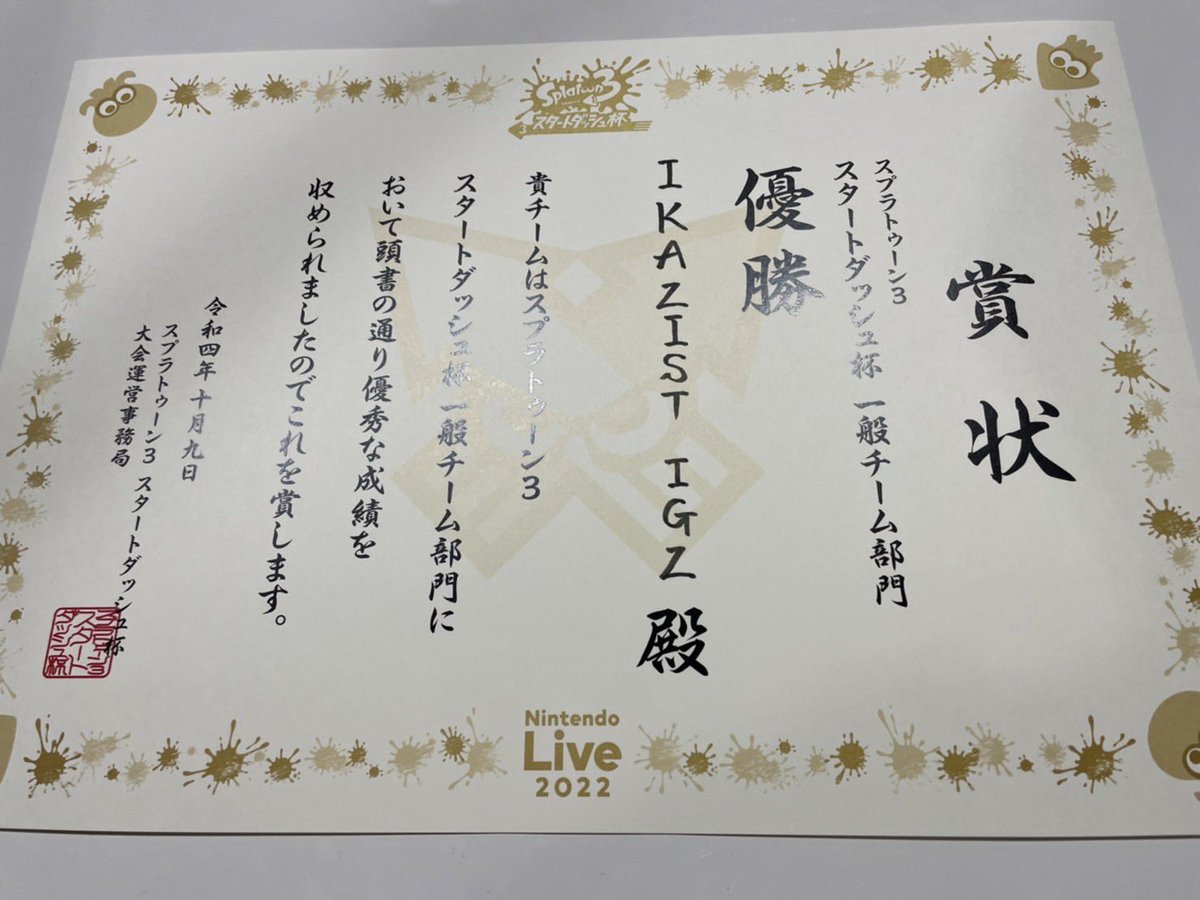 Splatoon3
スタートダッシュ杯
賞状
スプラトゥーン3
スタートダッシュ杯 一般チーム部門
優勝
IKAZIST IGZ 殿
貴チームはスプラトゥーン3
スタートダッシュ杯 一般チーム部門に
おいて頭書の通り優秀な成績を
収められましたのでこれを賞します。
令和四年十月九日
スプラトゥーン3 スタートダッシュ杯
大会運営事務局
Nintendo
Live
2022